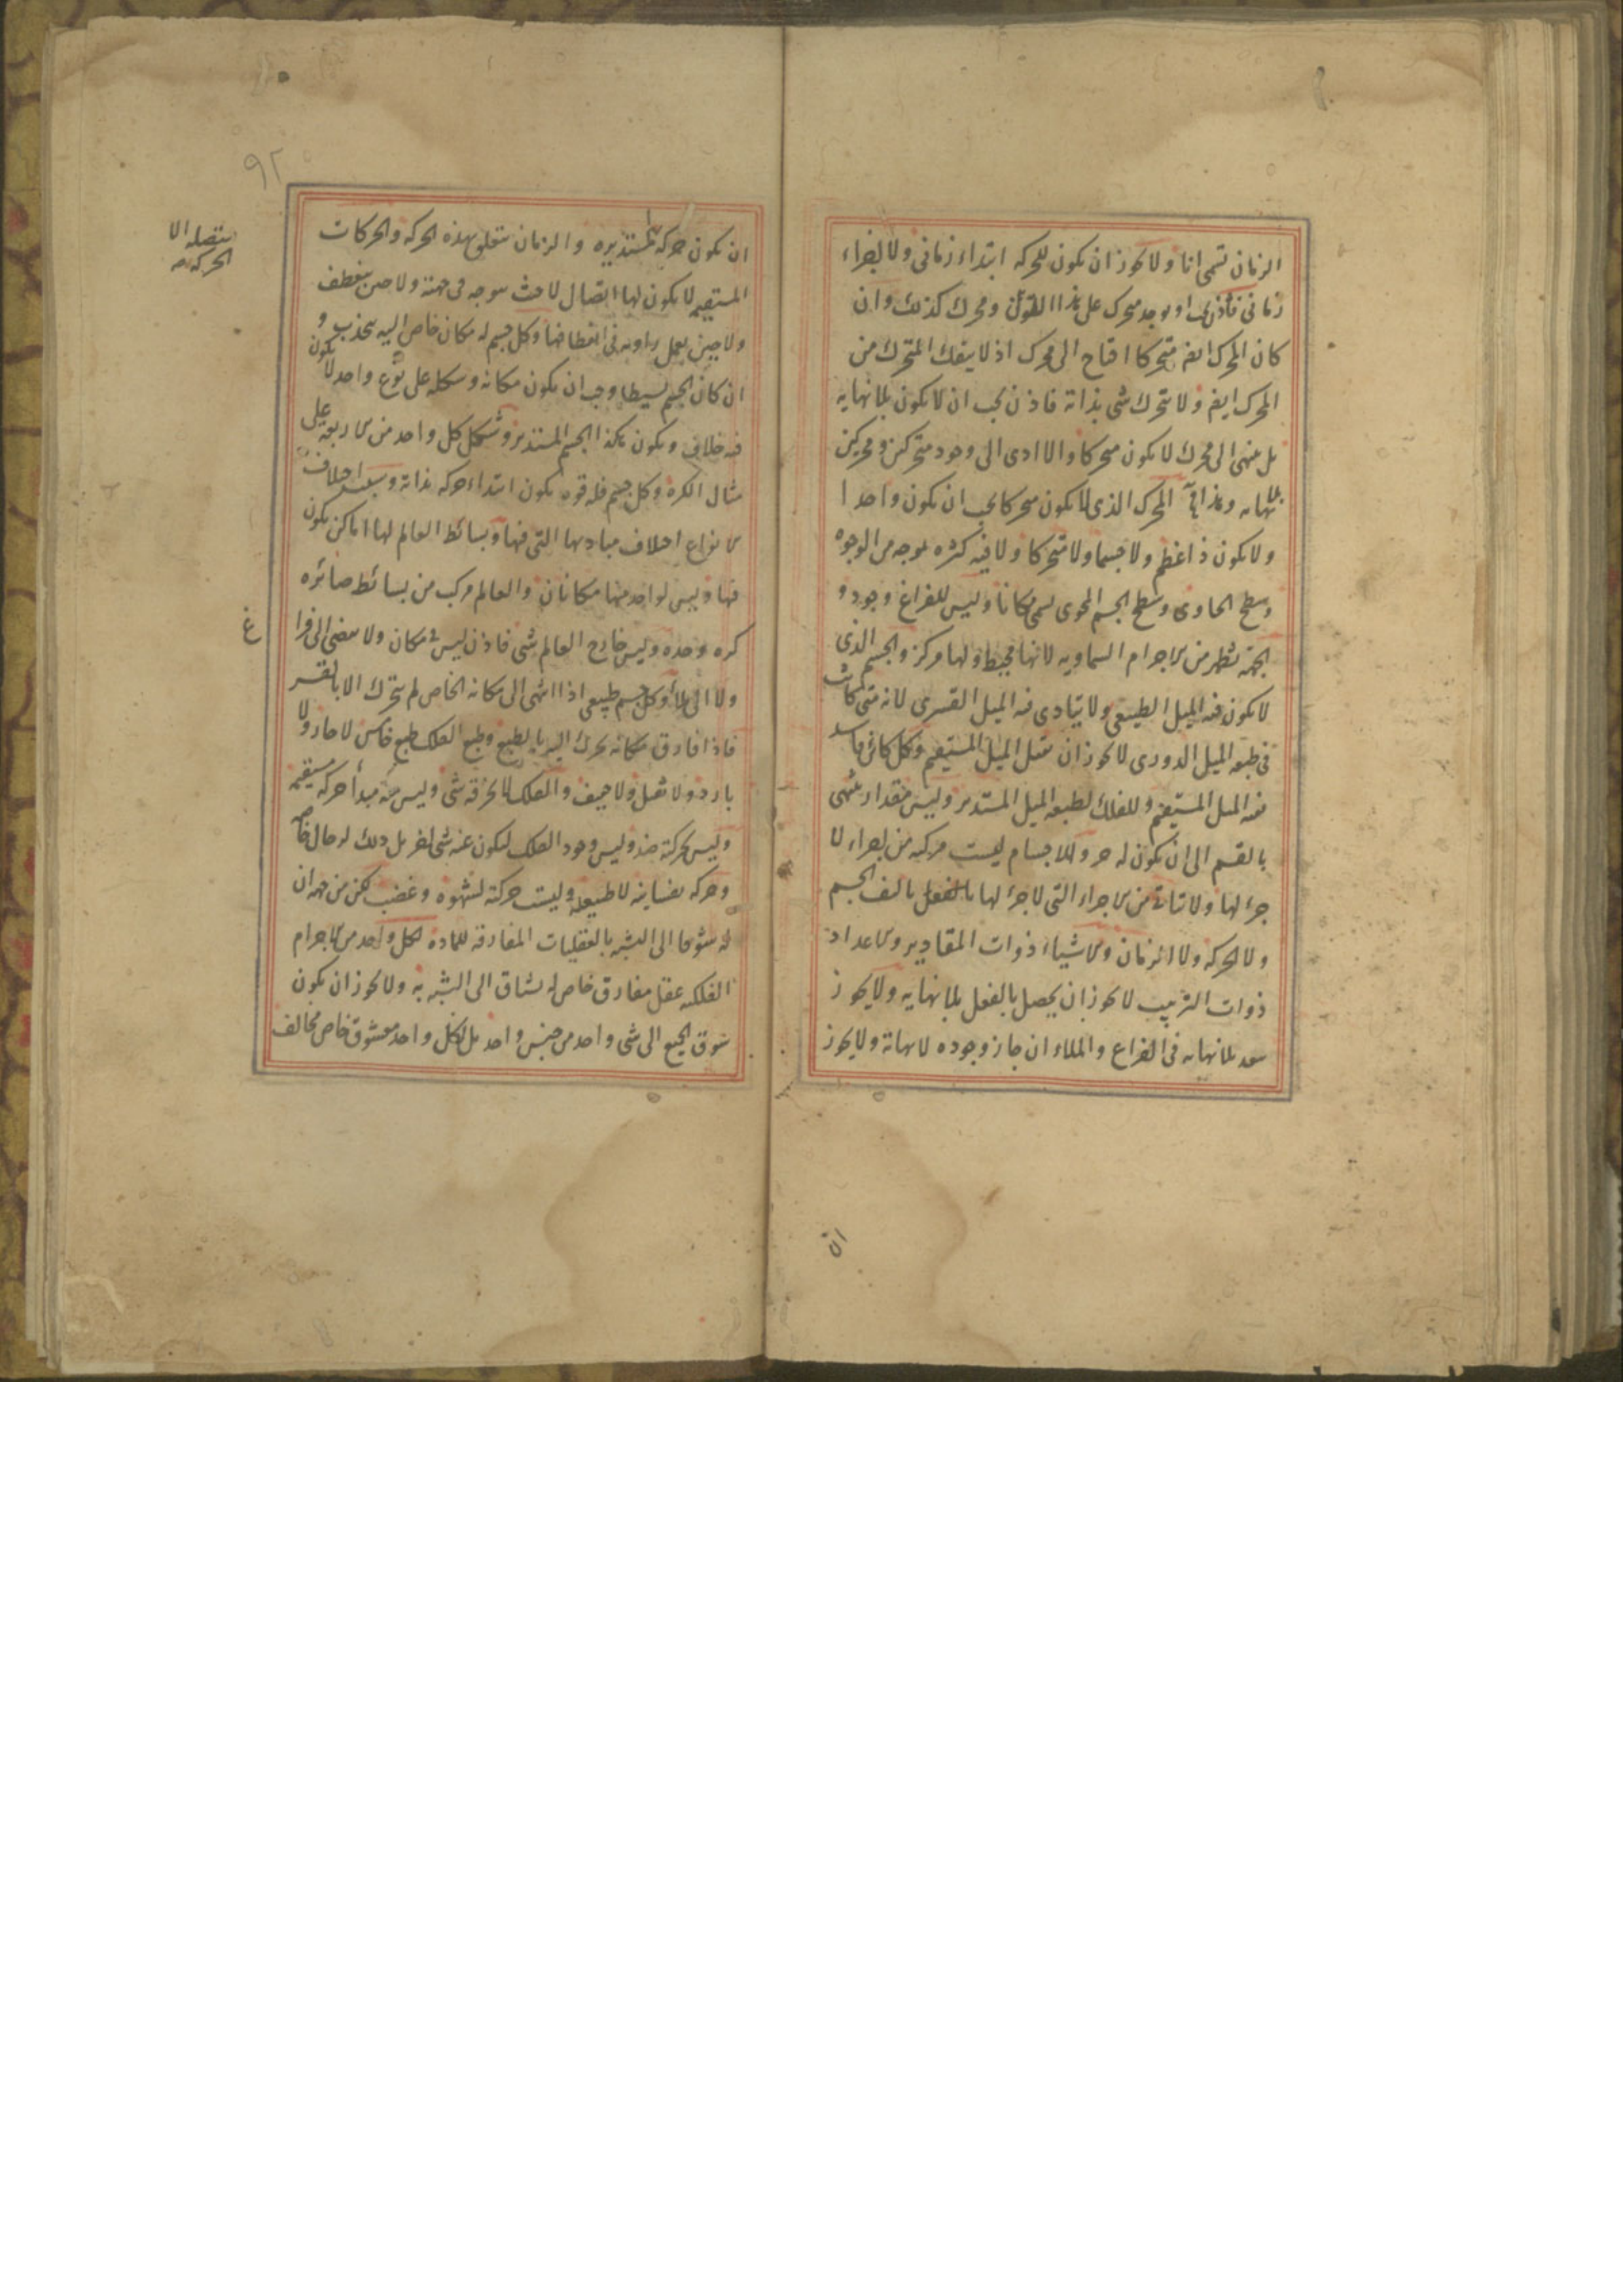 الزمان تسمى انا ولا يجوز ان يكون للحركه ابتداء زمانى ولا انتهاء
زمانى فاذن يجب ان يوجد متحرك على هذا القول ومحرك كذلك وان
كان المحرك ايضم متحركا احتاج الى محرك اذ لا ينفك المتحرك من
المحرك ايضم ولا يتحرك شى بذاته فاذن يجب ان لا يكون بلا نهايه
بل ينتهى الى محرك لا يكون متحركا والا ادى الى وجود متحركين ومحركين
بلا نهايه وهذا المحرك الذى لا يكون متحركا يجب ان يكون واحدا
ولا يكون ذا عظم ولا جسما ولا متحركا ولا فيه كثره بوجه من الوجوه
وسطح الحاوى وسطح الجسم المحوى يسمى مكانا وليس للفراغ وجود و
الجهه تظهر من الاجرام السماويه لانها محيط ولها مركز والجسم الذى
لا يكون فيه الميل الطبيعى ولا يتادى فيه الميل القسرى لانه متى كانت
فى طبعه الميل الدورى لا يجوز ان يقبل الميل المستقيم وكل كائن فاسد
فيه الميل المستقيم وللفلك لطبعه الميل المستدير وليس مقدار ينتهى
بالقسم الى ان يكون له جزء والاجسام ليست مركبه من اجزاء لا
جزء لها ولا يتاتى من الاجزاء التى لا جزء لها بالفعل تالف الجسم
ولا الحركه ولا الزمان والاشياء ذوات المقادير والاعداد
ذوات الترتيب لا يجوز ان يحصل بالفعل بلا نهايه ولا يجوز
بعد بلا نهايه فى الفراغ والملاء ان جاز وجوده لا نهاية ولا يجوز
ان
٩٢
ان يكون حركه مستديره والزمان يتعلق بهذه الحركه والحركات
المستقيمه لا يكون لها اتصال لا حيث يتوجه فى جهته ولا حين ينعطف
ولا حين يعمل زاويه فى انعطافها وكل جسم له مكان خاص اليه ينجذب و
ان كان الجسم بسيطا وجب ان يكون مكانه وشكله على نوع واحد لا يكون
فيه خلاف ويكون هكذا الجسم المستدير وشكل كل واحد من الاربعه على
مثال الكره وكل جسم فله قوه يكون ابتداء حركه بذاته وسبب اختلاف
الانواع اختلاف مباديها التى فيها وبسائط العالم لها اماكن يكون
فيها وليس لواحد منها مكانان والعالم مركب من بسائط صائره
كره وحده وليس خارج العالم شى فاذن ليس فى مكان ولا يفضى الى فراغ
ولا الى ملأ وكل جسم طبيعى اذا انتهى الى مكانه الخاص لم يتحرك الا بالقسر
فاذا فارق مكانه تحرك اليه بالطبع وطبع الفلك طبع خامس لا حار ولا
بارد ولا ثقيل ولا خفيف والفلك لا يخرقه شى وليس فيه مبدأ حركه مستقيمه
وليس لحركته ضد وليس وجود الفلك ليكون عنه شى اخر بل ذلك له حال خاص
وحركه نفسانيه لا طبيعيه وليست حركته لشهوه وغضب لكن من جهه ان
له شوقا الى التشبه بالعقليات المفارقه للماده لكل واحد من الاجرام
الفلكيه عقل مفارق خاص له يشتاق الى التشبه به ولا يجوز ان يكون
شوق الجميع الى شى واحد من جنس واحد بل لكل واحد معشوق خاص مخالف
متصله الا
الحركه